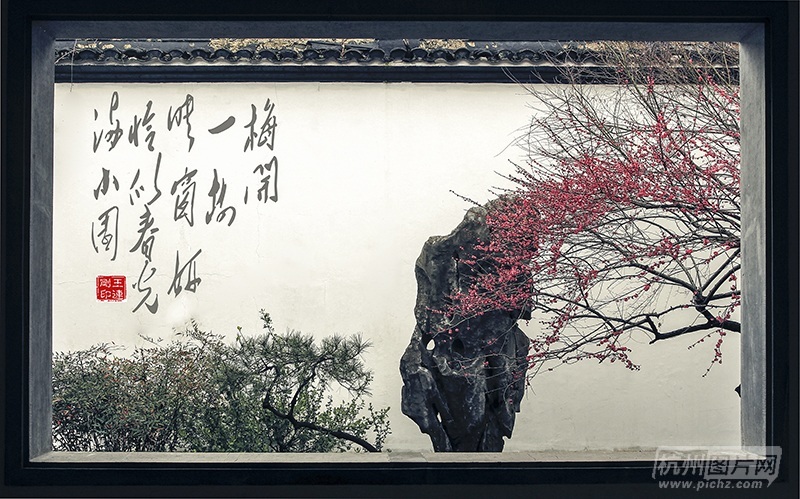 梅開
一樹
映窗妍
恰似春光
滿小園
王連
剛印
杭州图片网
www.pichz.com